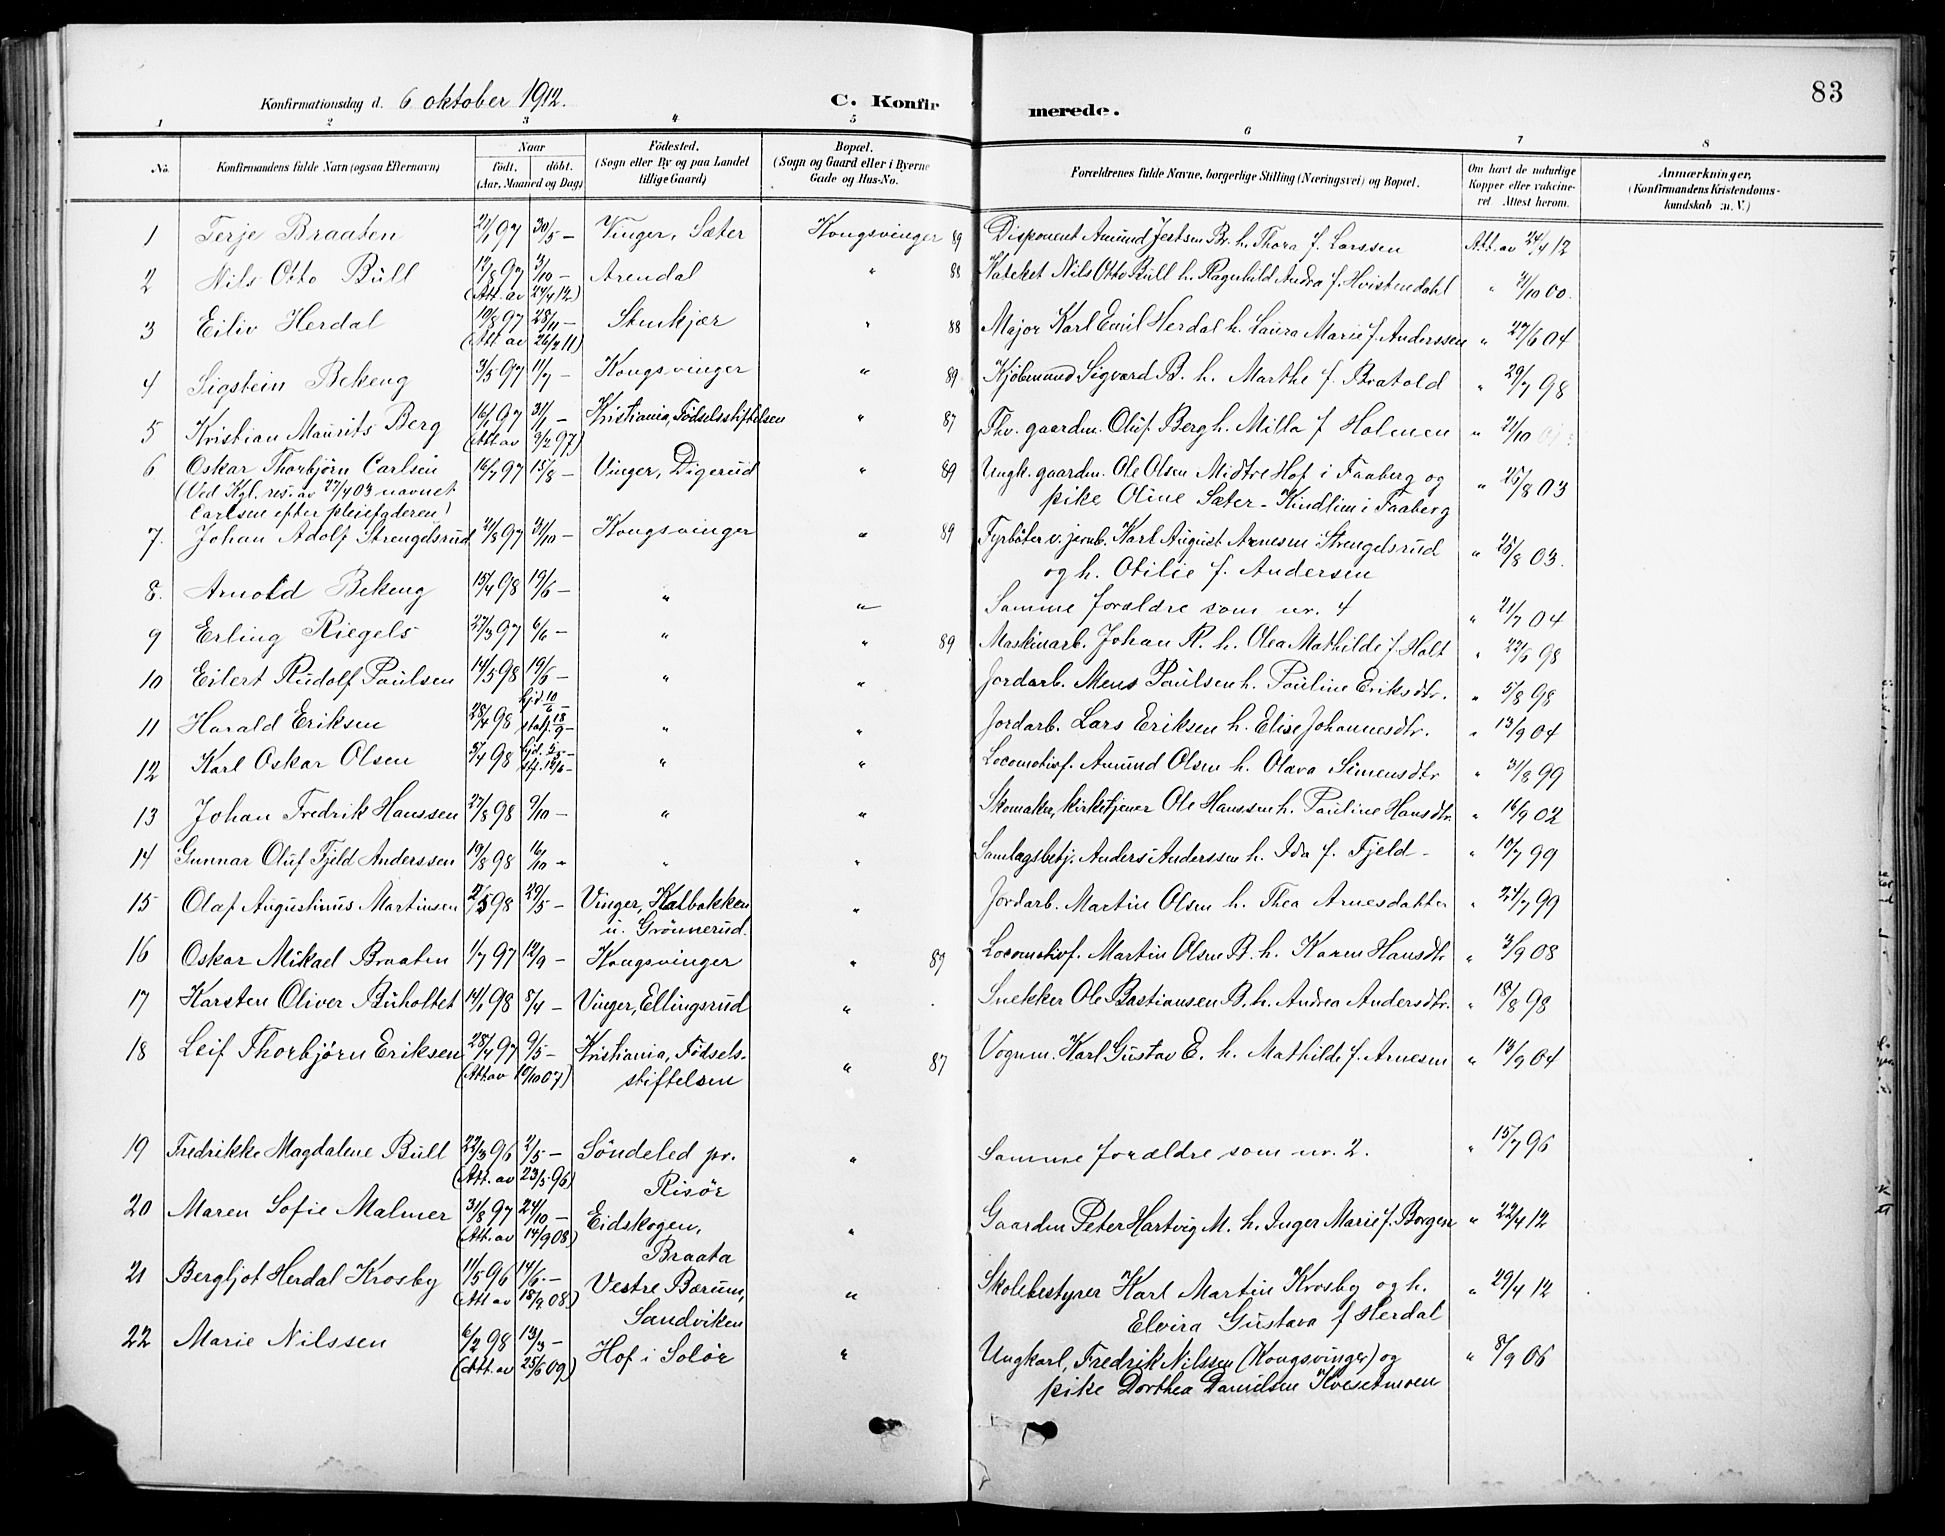 83
Konfirmationsdag d. 6 oktober 1912.
C. Konfirmerede.
1 2 3 4 5 6 7 8
No. Konfirmandens fulde Navn (ogsaa Efternavn) Naar født, døbt. (Aar, Maaned og Dag) Fødested. (Sogn eller By og paa Landet tillige Gaard) Bopæl. (Sogn og Gaard eller i Byerne Gade og Hus-No. Forældrenes fulde Navne, borgerlige Stilling (Næringsvei) og Bopæl. Om havt de naturlige Kopper eller vaccineret Attest herom. Anmærkninger, (Konfirmandens Kristendomskundskab m. V.)
1 Terje Braaten 97 30/5 – Vinger, Sæter Kongsvinger 89 Disponent Amund Br. h. Thora f. Larssen Att. av 24/4 12
2 Nils Otto Bull 17/8 97 3/10 – Arendal " 88 Kateket Nils Otto Bull h. Ragnhild Andra f. Hvistendahl " 21/10 00.
(Att. av 24/4 12)
3 Eiliv Herdal 19/8 97 28/11 – Stenkjær " 88 Major Karl Emil Herdal h. Laura Marie f. Anderssen " 27/6 04
(Att av 26/2 11)
4 Sigstein Bekeng 3/5 97 11/7 – Kongsvinger " 89 Kjøbmand Sigvard B. h. Marthe f. Bratold " 29/7 98
5 Kristian Maurits Berg 16/1 97 31/1 – Kristiania, Fødselsstiftelsen " 87 Fhv. gaardm. Oluf Berg h. Milla f Holmen " 21/10
(Att. av 9/2 97)
6 Oskar Thorbjörn Carlsen 16/7 97 15/8 – Vinger, Digerud " 89 Ungk. gaardm. Ole Olsen Midtre Hof i Faaberg og " 25/8 03
(Ved Kgl. res. av 27/4 03 navnet pike Oline Sæter - Kindlim i Faaberg
Carlsen efter pleiefaderen)
7. Johan Adolf Strengelsrud 21/8 97 31/10 – Kongsvinger " 89 Fyrbøter v. jernb. Karl August Arnesen Strengelsrud " 25/8 03.
og h. Otilie f. Andersen
8. Arnold Bekeng 15/4 98 19/6 – " " Samme forældre som nr. 4 " 21/7 04
9 Erling Riegels 27/3 97 6/6 – " " 89 Maskinarb. Johan R. h. Olea Mathilde f. Holt " 22/6 98
10 Eilert Rudolf Paulsen 14/5 98 19/6 – " " Jordarb. Mens Paulsen h. Pauline Eriksdtr. " 5/8 98
11 Harald Eriksen 28/4 98 hjd. 10/6 – stadf. 18/9 – " " Jordarb. Lars Eriksen h. Elise Johannesdtr. " 13/9 04
12 Karl Oskar Olsen 5/4 98 hjd. 5/5 – " " Locomotivf. Amund Olsen h. Olava Simensdtr " 31/8 99
13 Johan Fredrik Hanssen 27/8 98 9/10 – " " Skomaker, kirketjener Ole Hanssen h. Pauline Hansdtr. " 16/9 02
14 Gunnar Oluf Fjeld Anderssen 19/8 98 16/10 – " " Samlagsbetj. Anders Anderssen h. Ida f. Fjeld – " 10/7 99
15 Olaf Augustinus Martinsen 2/5 98 29/5 – Vinger, Kalbakken " Jordarb. Martin Olsen h. Thea Arnesdatter " 24/7 99
u. Grönnerud.
16 Oskar Mikael Braaten 1/7 97 12/9 – Kongsvinger " 89 Locomotivf. Martin Olsen B. h. Karen Hansdtr " 3/9 08
17 Karsten Oliver Buholtet 14/1 98 8/4 – Vinger, Ellingsrud " Snekker Ole Bastiansen B. h. Andrea Andersdtr. " 18/8 98
18 Leif Thorbjörn Eriksen 28/4 97 9/5 – Kristiania, Fødsels- " 87 Vognm. Karl Gustav E. h. Mathilde f. Arnesen " 13/9 04
(Att. av 19/10 07) stiftelsen
19 Fredrikke Magdalene Bull 22/3 96 2/5 – Söndeled pr. " Samme forældre som nr. 2. " 15/7 96
(Att. av 23/5 96) Risör
20 Maren Sofie Malmer 31/8 97 24/10 – Eidskogen, " Gaardm Peter Hartvig M. h. Inger Marie f. Borgen " 22/4 12
(Att. av 14/9 08) Braata
21 Bergljot Herdal Krosby 11/5 96 14/6 – Vestre Bærum, " Skolebestyrer Karl Martin Krosby og h. " 29/4 12
(Att av 18/9 08) Sandviken Elvira Gustava f Herdal
22 Marie Nilssen 6/2 98 13/3 – Hof i Solör " Ungkarl, Fredrik Nilssen (Kongsvinger) og " 8/9 06
(Att. av 25/6 09) pike Dorthea Danielsen Kvesetmoen